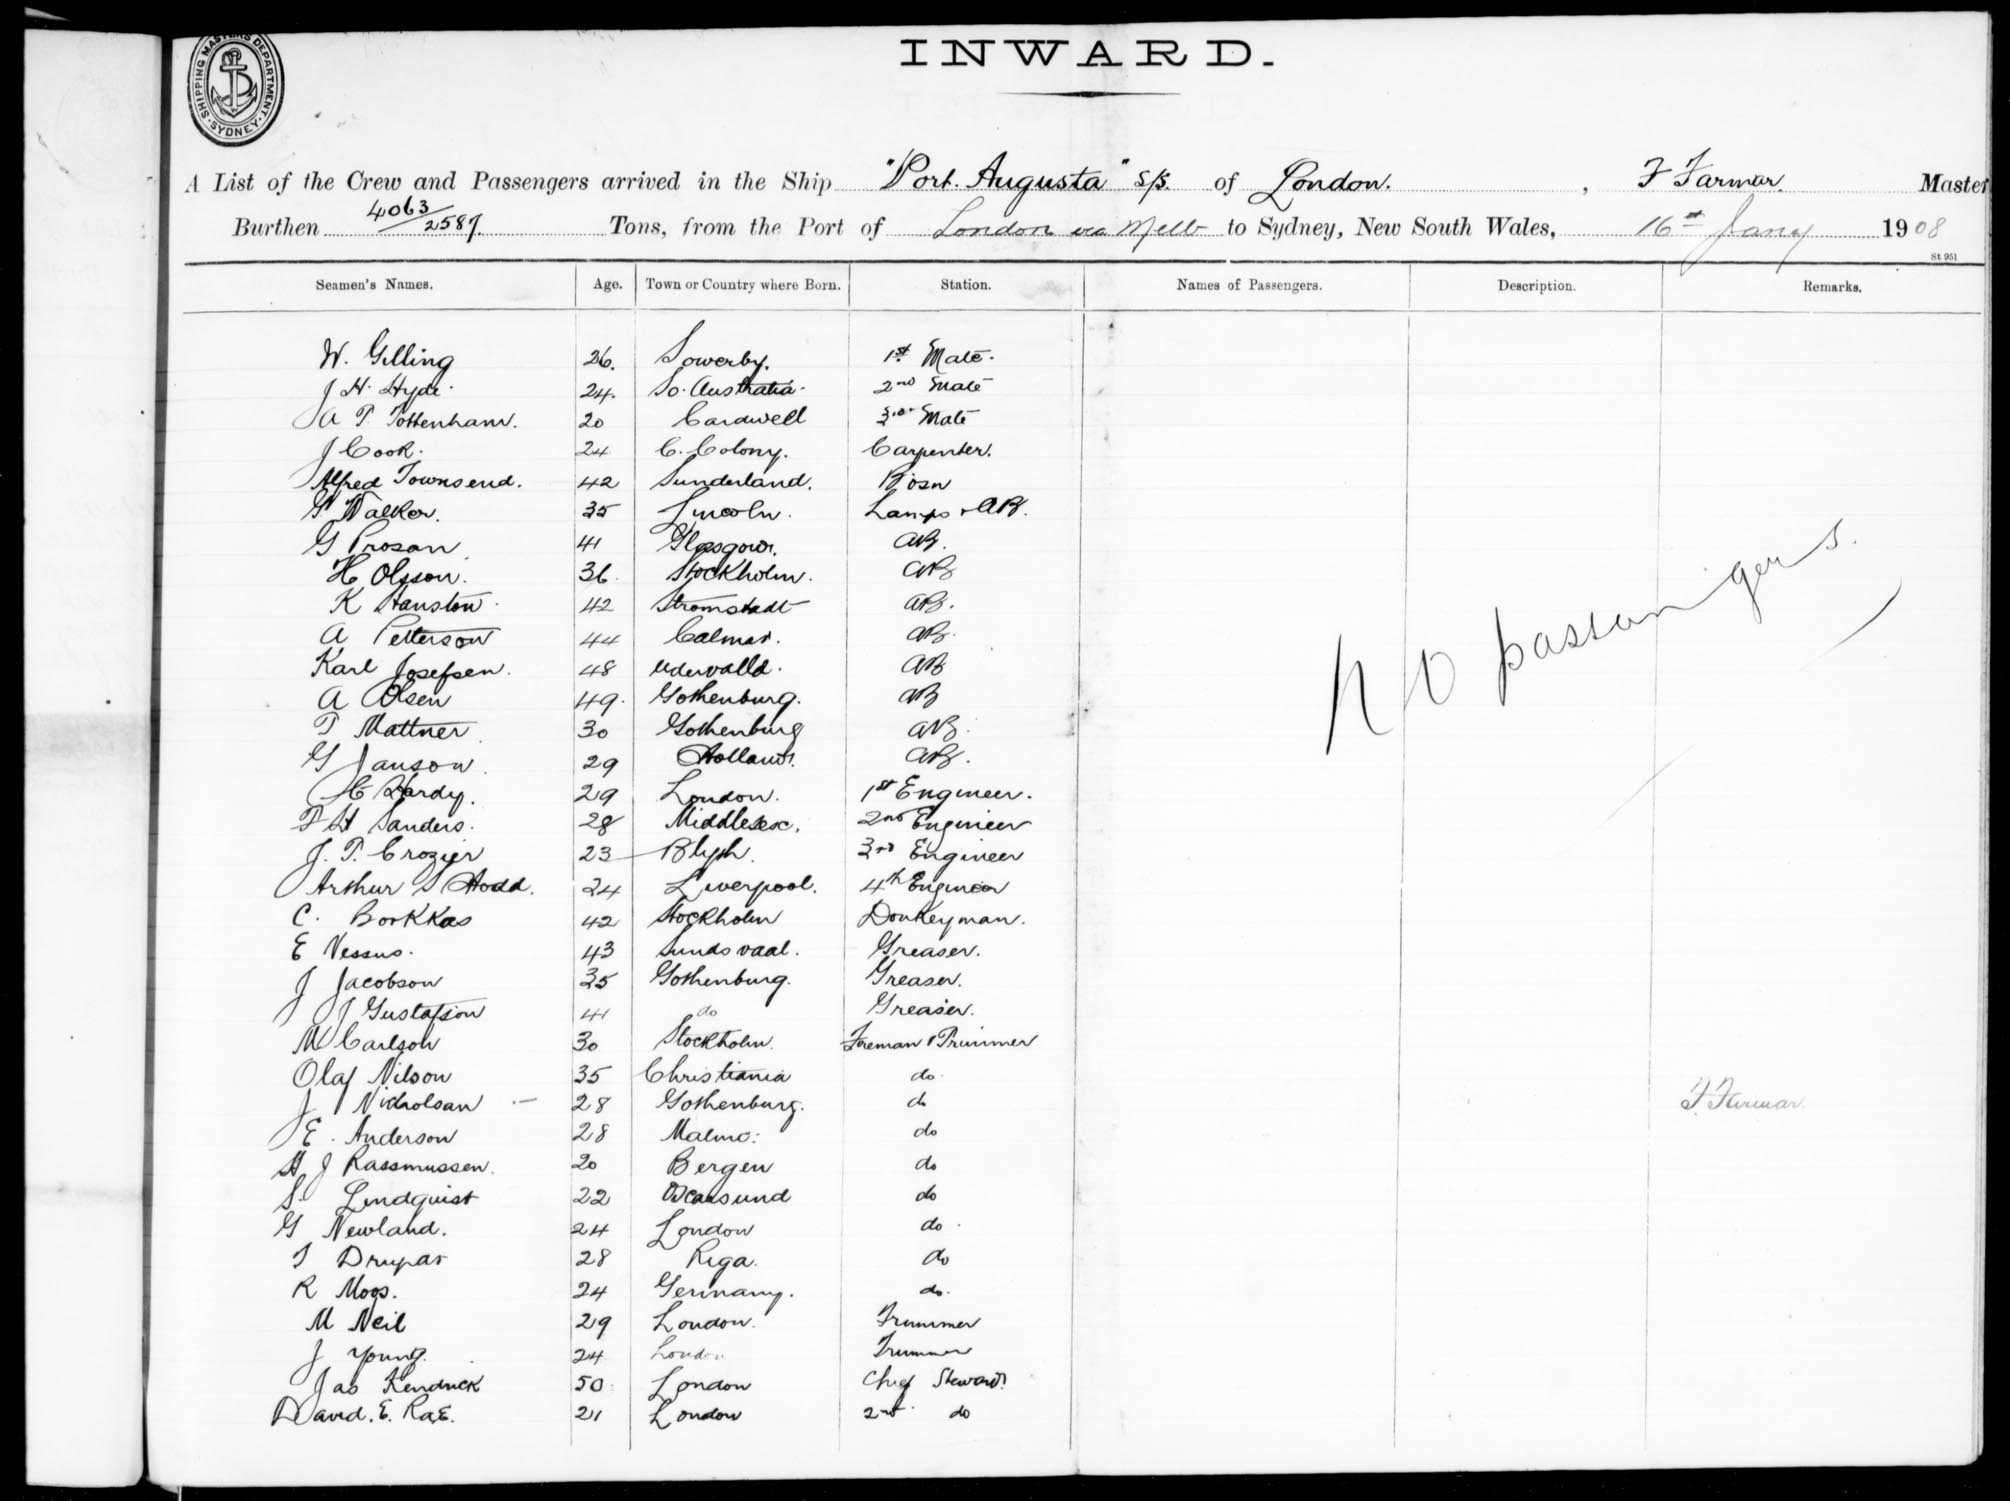 SHIPPING MASTERS DEPARTMENT. SYDNEY.
INWARD.
A List of the Crew and Passengers arrived in the Ship "Port Augusta" S/S. of London. , F Farmar. Master
Burthen 4063/2587 Tons, from the Port of London via Melb to Sydney, New South Wales, 16th Jany 1908
St 951
Seamen's Names. Age. Town or Country where Born. Station. Names of Passengers. Description. Remarks.
W. Gilling 26. Sowerby. 1st Mate.
J H. Hyde. 24. So. Australia. 2nd Mate
A T Tottenham. 20 Cardwell 3rd Mate
J Cook. 24 C. Colony. Carpenter.
Alfred Townsend. 42 Sunderland. Bosn
G Walker. 35 Lincoln. Lamps & AB.
G Prosan 41 Glasgow. AB.
H Olsson. 36. Stockholm. AB
K Stauston. 42 Stromstadt AB.
A Petterson 44 Calmar. AB.
Karl Josefsen. 48 Udevalla. AB
A Olsen 49. Gothenburg. AB
T Mattner 30 Gothenburg AB.
G Janson. 29 Holland. AB.
No passengers.
C Hardy. 29 London. 1st Engineer.
F H Sanders. 28 Middlesex. 2nd Engineer
J. T. Crozier 23 Blyth. 3rd Engineer
Arthur S Hodd. 24 Liverpool. 4th Engineer
C. Borkkas 42 Stockholm Donkeyman.
E Nessus. 43 Sundsvaal. Greaser.
J Jacobson 35 Gothenburg. Greaser.
J Gustafson 41 do Greaser.
M Carlson 30 Stockholm. Fireman & Trimmer
Olaf Nilson 35 Christiania do.
J Nicholsan 28 Gothenburg. do F. Farmar.
E. Anderson 28 Malmo: do
H J Rassmussen. 20 Bergen do
S. Lindquist 22 do
G Newland. 24 London do.
J Drupas 28 Riga. do
R Moos. 24 Germany. do.
M Neil 29 London. Trimmer
J Young. 24 London Trimmer
Jas Kendrick 50 London Chief Steward.
David. E. Rae. 21 London 2nd do